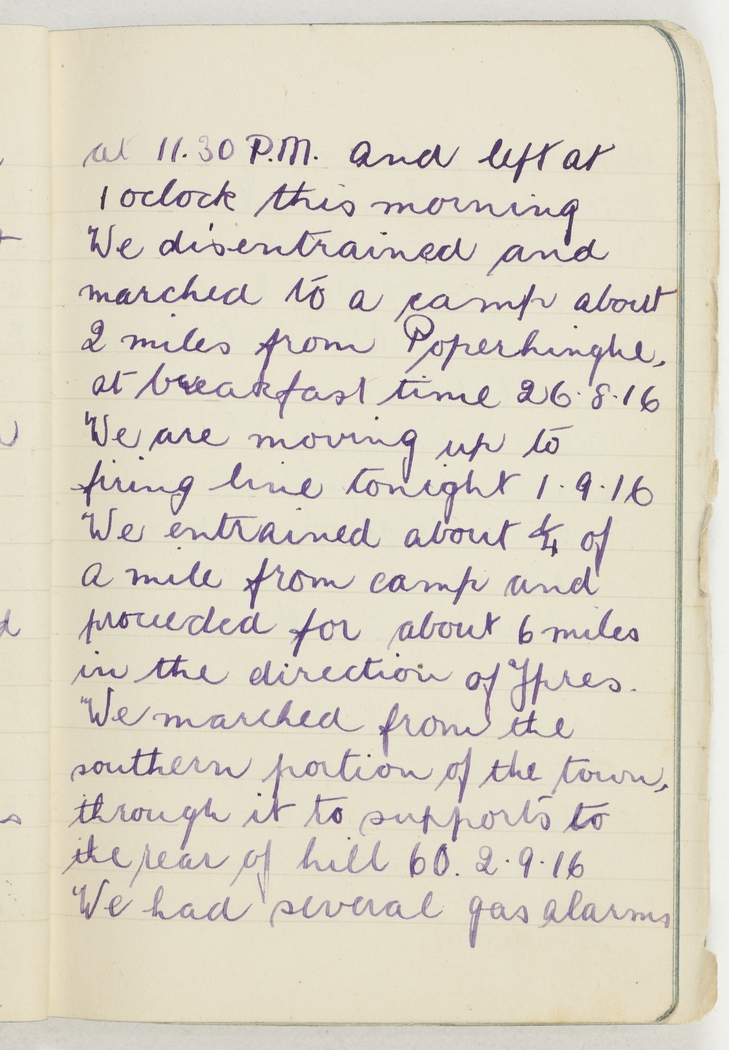 at 11.30 P.M. and left at
1 oclock this morning
We disentrained and
marched to a camp about
2 miles from Poperhinghe,
at breakfast time 26.8.16
We are moving up to
firing line tonight 1.9.16
We entrained about ¼ of
a mile from camp and
proceeded for about 6 miles
in the direction of Ypres.
We marched from the
southern portion of the town,
through it to supports to
the rear of hill 60. 2.9.16
We had several gas alarms